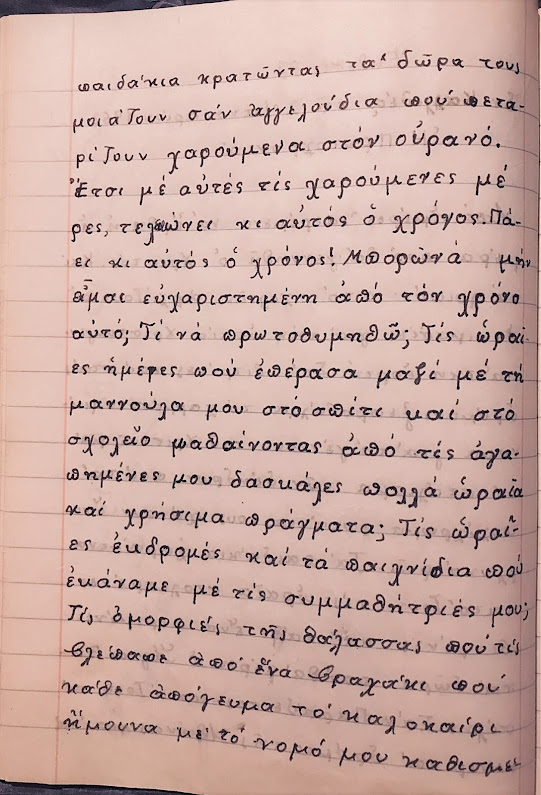 παιδάκια κρατῶντας τά δῶρα τους
μοιάζουν σάν ἀγγελούδια πού πετα-
ρίζουν χαρούμενα στόν οὐρανό.
Ἔτσι μέ αὐτές τίς χαρούμενες μέ
ρες, τελειώνει κι αὐτός ὁ χρόνος. Πά-
ει κι αὐτός ὁ χρόνος! Μπορῶ νά μήν
εἶμαι εὐχαριστημένη ἀπό τόν χρόνο
αὐτό; Τί νά πρωτοθυμηθῶ; Τίς ὡραῖ-
ες ἡμέρες πού ἐπέρασα μαζί μέ τή
μαννούλα μου στό σπίτι καί στό
σχολεῖο μαθαίνοντας ἀπό τίς ἀγα-
πημένες μου δασκάλες πολλά ὡραῖα
καί χρήσιμα πράγματα; Τίς ὡραῖ-
ες ἐκδρομές καί τά παιχνίδια πού
ἐκάναμε μέ τίς συμμαθήτριές μου;
Τίς ὀμορφιές τῆς θάλασσας πού τίς
βλέπαμε ἀπό ἕνα βραχάκι πού
κάθε ἀπόγευμα τό καλοκαίρι
ἤμουνα μέ τό νομό μου καθισμέ